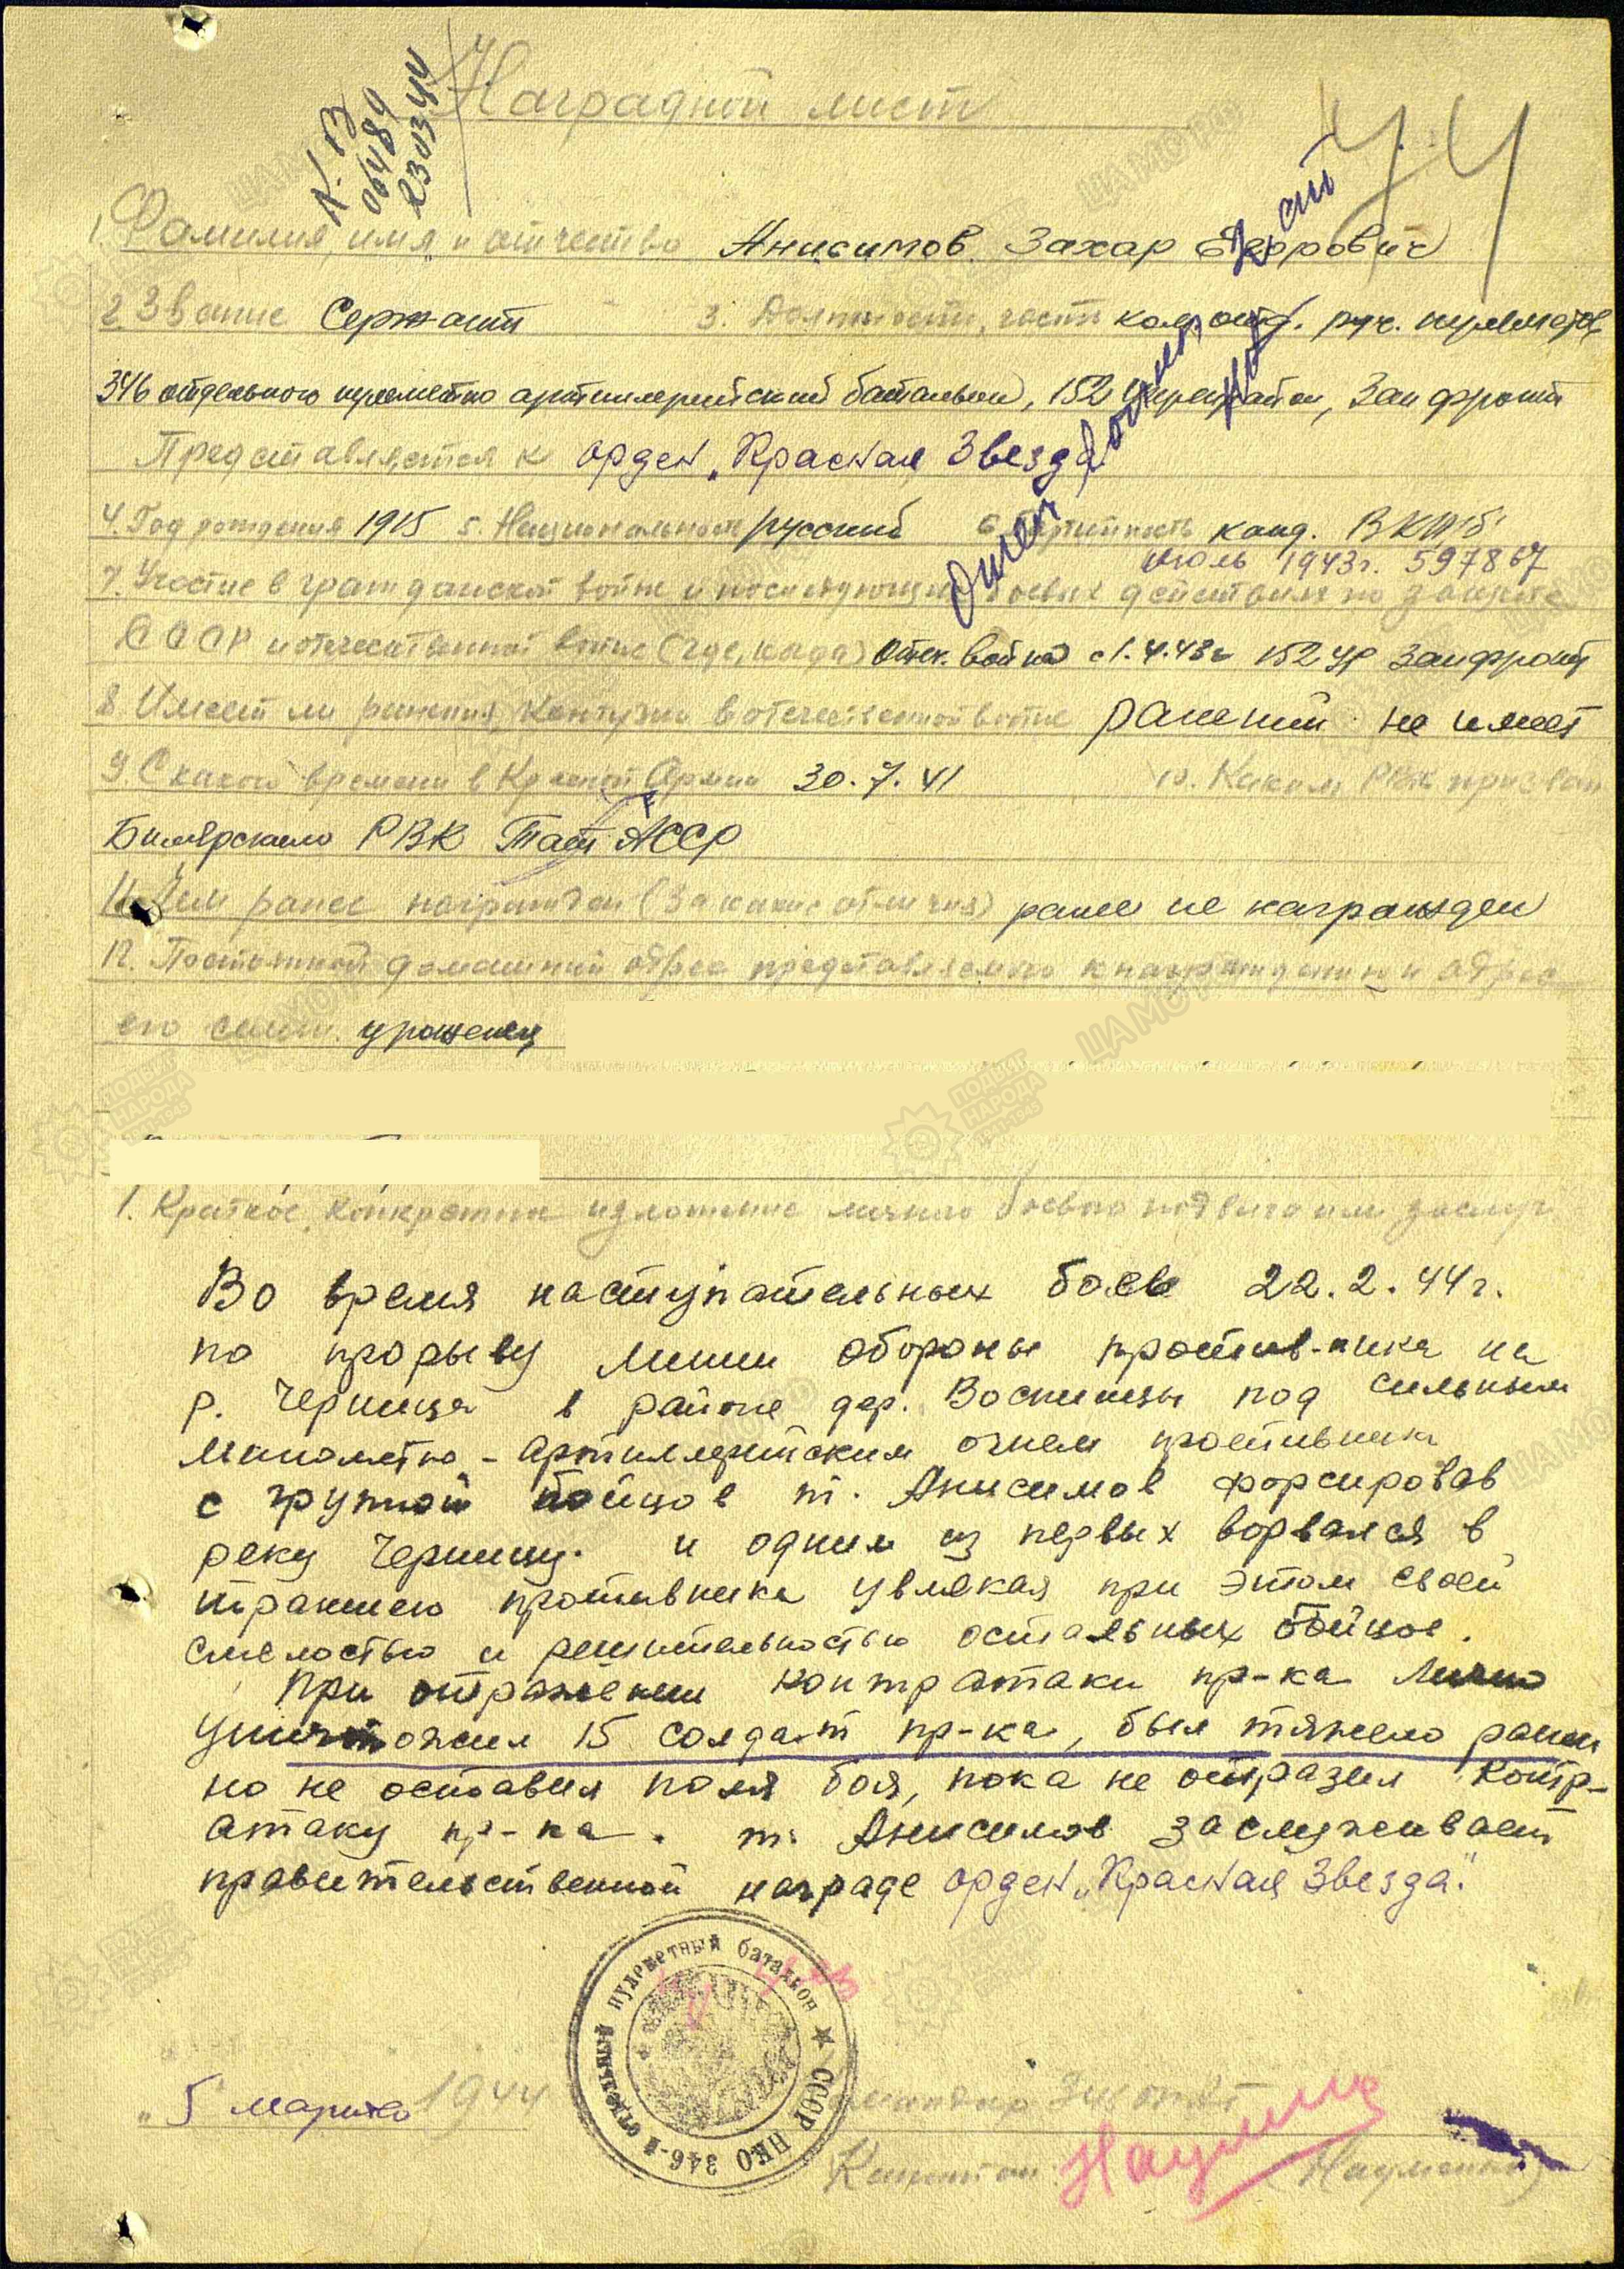 Наградной лист
К. В
06489
230344
44
1. Фамилия, имя и отчество Анисимов Захар
2. Звание Сержант 3. Должность, часть ком. отд. руч. пулеметов
346 отдельного пулеметно артиллерийский батальон, 152 укрепрайон, Зап фронт
Представляется к орден „Красная Звезда
Отеч. войны 2 ст
4. Год рождения 1915 5. Национальность русский 6. Партийность канд. ВКПб
июль 1943г. 597867
7. Участие в гражданской войне и последующих боевых действиях по защите
СССР и отечественной войне (где, когда) Отеч. война с 1.4.43г 152 УР Запфронт
8. Имеет ли ранения, контузии в отечественной войне ранений не имеет
9. С какого времени в Красной Армии 30.7.41 10. Каким РВК призван
Билярского РВК Тат АССР
11. Чем ранее награжден (за какие отличия) ранее не награжден
12. Постоянный домашний адрес представляемого к награждению и адрес
его семьи. уроженец
1. Краткое, конкретное изложение личного боевого подвига или заслуг
Во время наступательных боев 22.2.44г.
по прорыву линии обороны против-ника на
р. Черница в районе дер. Воскинцы под сильным
минометно-артиллерийским огнем противника
с группой бойцов т. Анисимов форсировав
реку Черницу. и одним из первых ворвался в
траншею противника увлекая при этом своей
смелостью и решительностью остальных бойцов.
При отражении контратаки пр-ка лично
уничтожил 15 солдат пр-ка, был тяжело ранен
но не оставил поля боя, пока не отразил контр-
атаку пр-ка. т. Анисимов заслуживает
правительственной награде орден „Красная Звезда."
СССР НКО 346-й отдельный пулеметный батальон
„5 марта 1944
Командир 346
Капитан (Науменко)
ЦАМО РФ
ПОДВИГ
НАРОДА
1941-1945